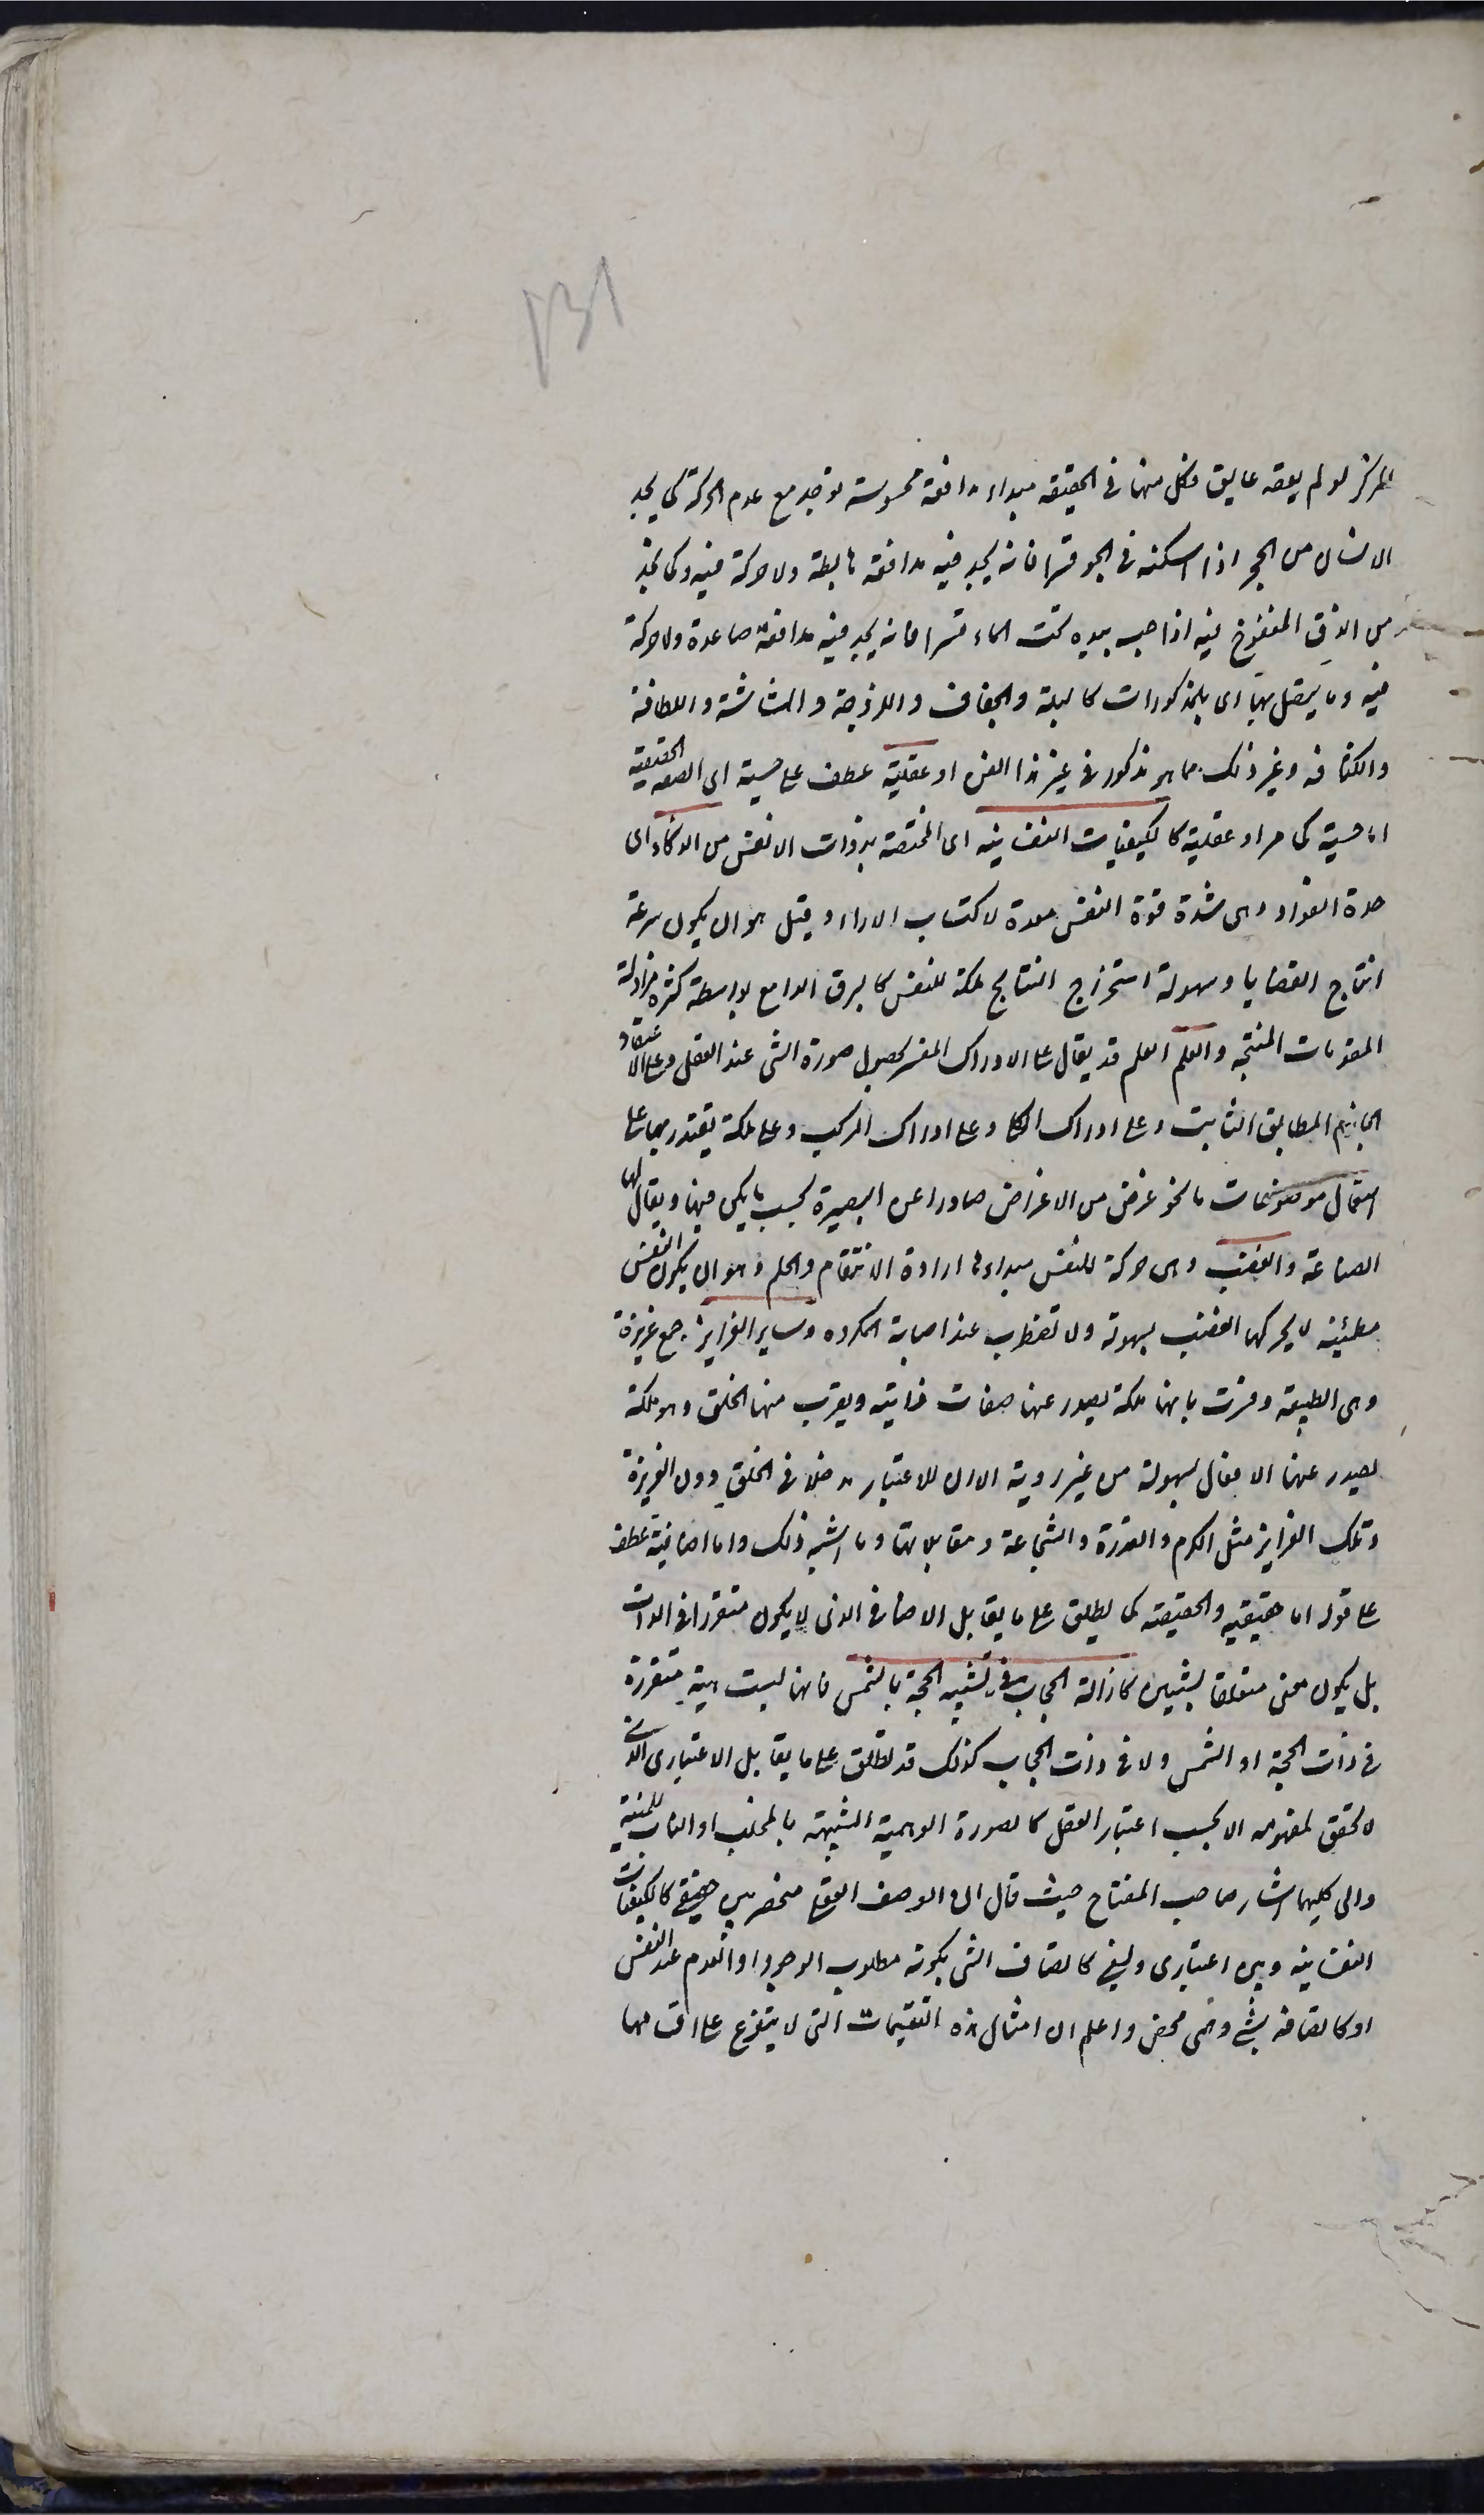 ١٣١
المركز لو لم يعقه عايق فكل منهما فى الحقيقه مبداء مدافعة محسوسة توجد مع عدم الحركة كما يجد
الانسان من الحجر اذا اسكنه فى الجو قسرا فانه يجد فيه مدافعة هابطة ولا حركة فيه وكما يجد
من الزق المنفوخ فيه اذا حبسه بيده تحت الماء قسرا فانه يجد فيه مدافعة صاعدة ولا حركة
فيه وما يتصل بها اى بالمذكورات كالبلة والجفاف واللزوجة والهشاشة واللطافة
والكثافه وغير ذلك مما هو مذكور فى غير هذا الفن او عقلية عطف على حسية اى الصفه الحقيقية
اما حسية كما مر او عقلية كالكيفيات النفسانيه اى المختصة بذوات الانفس من الذكاء اى
حدة الفواد وهى شدة قوة النفس معدة لاكتساب الاراء وقيل هو ان يكون سرعة
انتاج القضايا وسهولة استخراج النتايج ملكة للنفس كالبرق الامع بواسطة كثرة مزاولة
المقدمات المنتجه والعلم العلم قد يقال على الادراك المفسر بحصول صورة الشى عند العقل وعلى الاعتقاد
الجازم المطابق الثابت وعلى ادراك الكلى وعلى ادراك المركب وعلى ملكة يقتدر بها على
استعمال موضوعات ما نحو غرض من الاغراض صادرا عن البصيرة بحسب ما يمكن فيها ويقال لها
الصناعة والغضب وهى حركة للنفس مبداءها ارادة الانتقام والحلم وهو ان يكون النفس
مطمئنة لا يحركها الغضب بسهولة ولا تضطرب عند اصابة المكروه وساير الغرايز جمع غريزة
وهى الطبيعة وفسرت بانها ملكة يصدر عنها صفات ذاتية ويقرب منها الخلق وهو ملكة
يصدر عنها الافعال بسهولة من غير روية الا ان للاعتبار مدخلا فى الخلق دون الغريزة
وتلك الغرايز مثل الكرم والقدرة والشجاعة ومقابلاتها وما اشبه ذلك واما اضافية عطف
على قوله اما حقيقيه والحقيقه كما يطلق على ما يقابل الاضافى الذى لا يكون متقررا فى الذات
بل يكون معنى متعلقا بشيئين كازالة الحجاب فى تشبيه الحجة بالشمس فانها ليست هيئة متقررة
فى ذات الحجة او الشمس ولا فى ذات الحجاب كذلك قد تطلق على ما يقابل الاعتبارى الذى
لا تحقق لمفهومه الا بحسب اعتبار العقل كالصورة الوهمية الشبيهة بالمخلب او الناب للمنية
والى كليهما اشار صاحب المفتاح حيث قال ان الوصف العقلى منحصر بين حقيقى كالكيفيات
النفسانية وبين اعتبارى ونسبى كاتصاف الشى بكونه مطلوب الوجود او العدم عند النفس
او كاتصافه بشى وهمى محض واعلم ان امثال هذه التقسيمات التى لا يتفرع على اقسامها